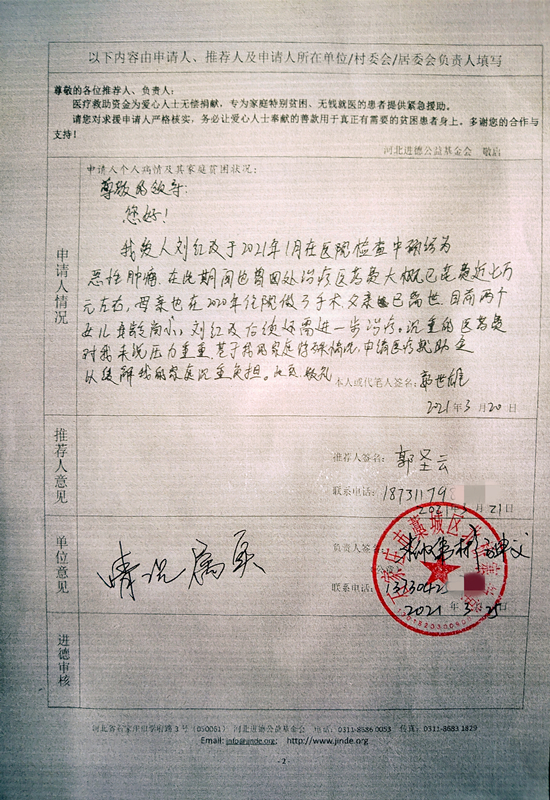 以下内容由申请人、推荐人及申请人所在单位/村委会/居委会负责人填写
尊敬的各位推荐人、负责人：
医疗救助资金为爱心人士无偿捐献，专为家庭特别贫困、无钱就医的患者提供紧急援助。
请您对求援申请人严格核实，务必让爱心人士奉献的善款用于真正有需要的贫困患者身上。多谢您的合作与
支持！
河北进德公益基金会 敬启
申请人情况
申请人个人病情及其家庭贫困状况：
尊敬的领导：
您好！
我爱人刘红及于2021年1月在医院检查中确诊为
恶性肿痛，在此期间也曾四处治疗医药费大概已花费近七万
元左右，母亲也在2020年住院做了手术父亲已离世，目前两个
女儿年龄尚小，刘红及后续还需进一步治疗。沉重的医药费
对我来说压力重重，基于我的家庭特殊情况，申请医疗救助
以缓解我的家庭沉重负担。此致 敬礼
本人或代笔人签名：郭世雄
2021年3月20日
推荐人意见
推荐人签名：郭圣云
联系电话：18731179
2021年3月21日
单位意见
情况属实
负责人签
联系电话：
2021年3月25
进德审核
河北省石家庄市学府路3号（050061） 河北进德公益基金会 电话：0311-8586 0053 传真：0311-8683 1829
Email: info@jinde.org; http://www.jinde.org
- 2 -